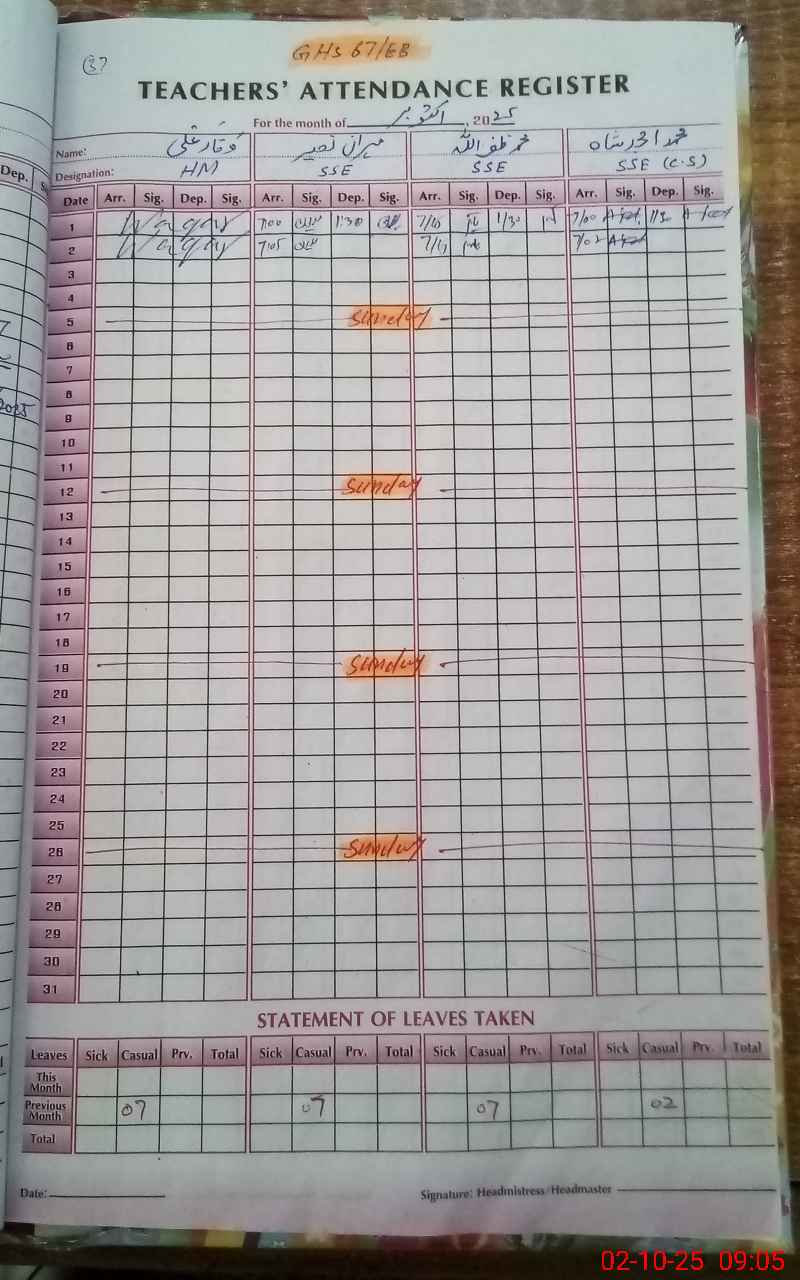 37
GHS 67/EB
TEACHERS' ATTENDANCE REGISTER
For the month of اکتوبر, 2025
Name: وقار علی محمد ظفر اللہ محمد امجد شاہ
Designation: HM SSE SSE SSE (C.S)
Date Arr. Sig. Dep. Sig. Arr. Sig. Dep. Sig. Arr. Sig. Dep. Sig. Arr. Sig. Dep. Sig.
1 Waqar 7:00 1:30 1/30 7/00
2 Waqar 7:05 7/02
3
4
5 Sunday
6
7
8
9
10
11
12 Sunday
13
14
15
16
17
18
19 Sunday
20
21
22
23
24
25
26 Sunday
27
28
29
30
31
STATEMENT OF LEAVES TAKEN
Leaves Sick Casual Prv. Total Sick Casual Prv. Total Sick Casual Prv. Total Sick Casual Prv. Total
This Month
Previous Month 07 07 07 02
Total
Date: Signature: Headmistress/Headmaster
Dep.
2025
02-10-25 09:05